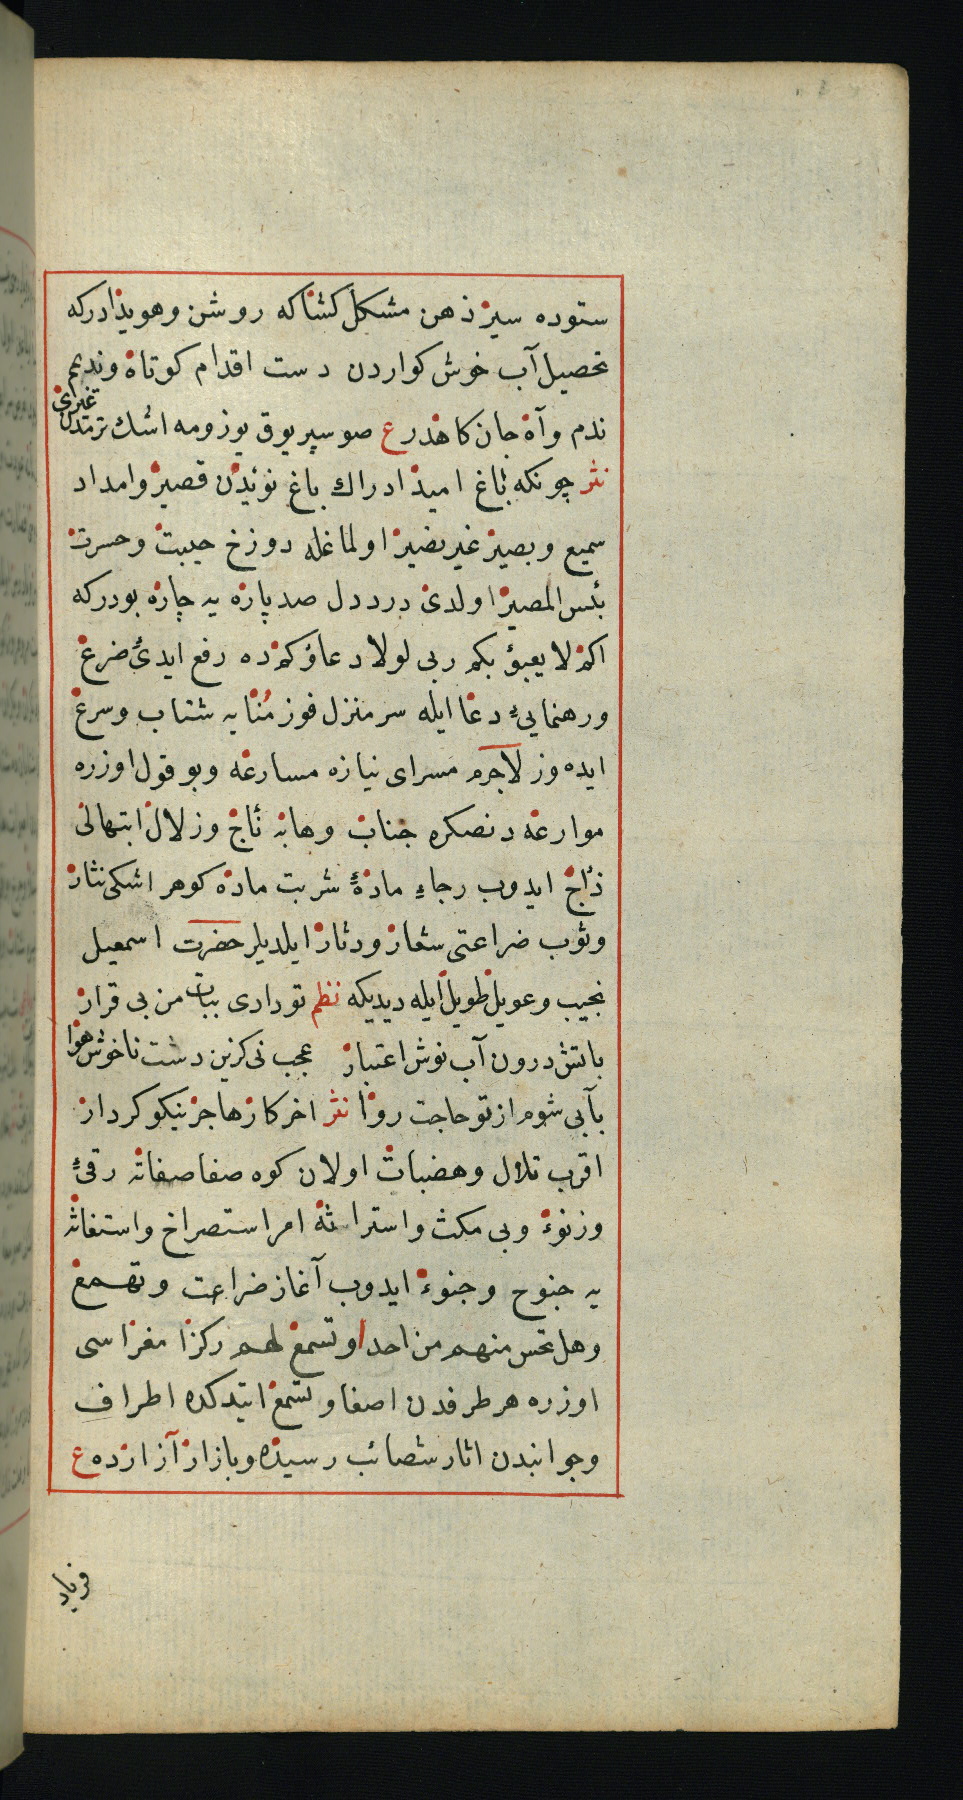 ستوده سیر ذهن مشکل کشاکه روشن وهویدادرکه
تحصیل آب خوش کواردن دست اقدام کوتاه وندیم
ندم وآه جان کاهدر ع صو سپر یوق یوزومه اشك ترمدن غیری
نثر چونکه باغ امید ادراك باغ نوئیدن قصیر وامداد
سمیع وبصیر غیر نضیر اولماغله دوزخ حیبت وحسرت
بئس المصیر اولدی درد دل صد پاره یه چاره بودرکه
اکر لا یعبؤ بکم ربی لولا دعاؤکم ده رفع ایدی ضرع
ورهنمایئ دعا ایله سر منزل فوز منایه شتاب وسرع
ایده وز لاجرم مسرای نیازه مسارعه وبو قول اوزره
موارعه دنصکره جناب وهابه ناج وزلال ابتهالی
ذاج ایدوب رجاء ماده شربت ماده کوهر اشکی نثار
وثوب ضراعتی شعار ودثار ایلدیلر حضرت اسمعیل
نحیب وعویل طویل ایله دیدیکه نظم تو داری ببات من بی قرار
باتش درون آب نوش اعتبار عجب نی کزین دشت ناخوش هوا
بآبی شوم از تو حاجت روا نثر اخر کار هاجر نیکو کردار
اقرب تلال وهضبات اولان کوه صفا صفاته رقئ
وزنوء وبی مکث واستراثه امر استصراخ واستغاثه
یه جنوح وجنوء ایدوب آغاز ضراعت وتهمع
وهل تحس منهم من احد او تسمع لهم رکزا مغزاسی
اوزره هر طرفدن اصغا وتسمع ایتدکده اطراف
وجوانبدن اثار شصائب رسیده وبازار آزارده ع
فریاد